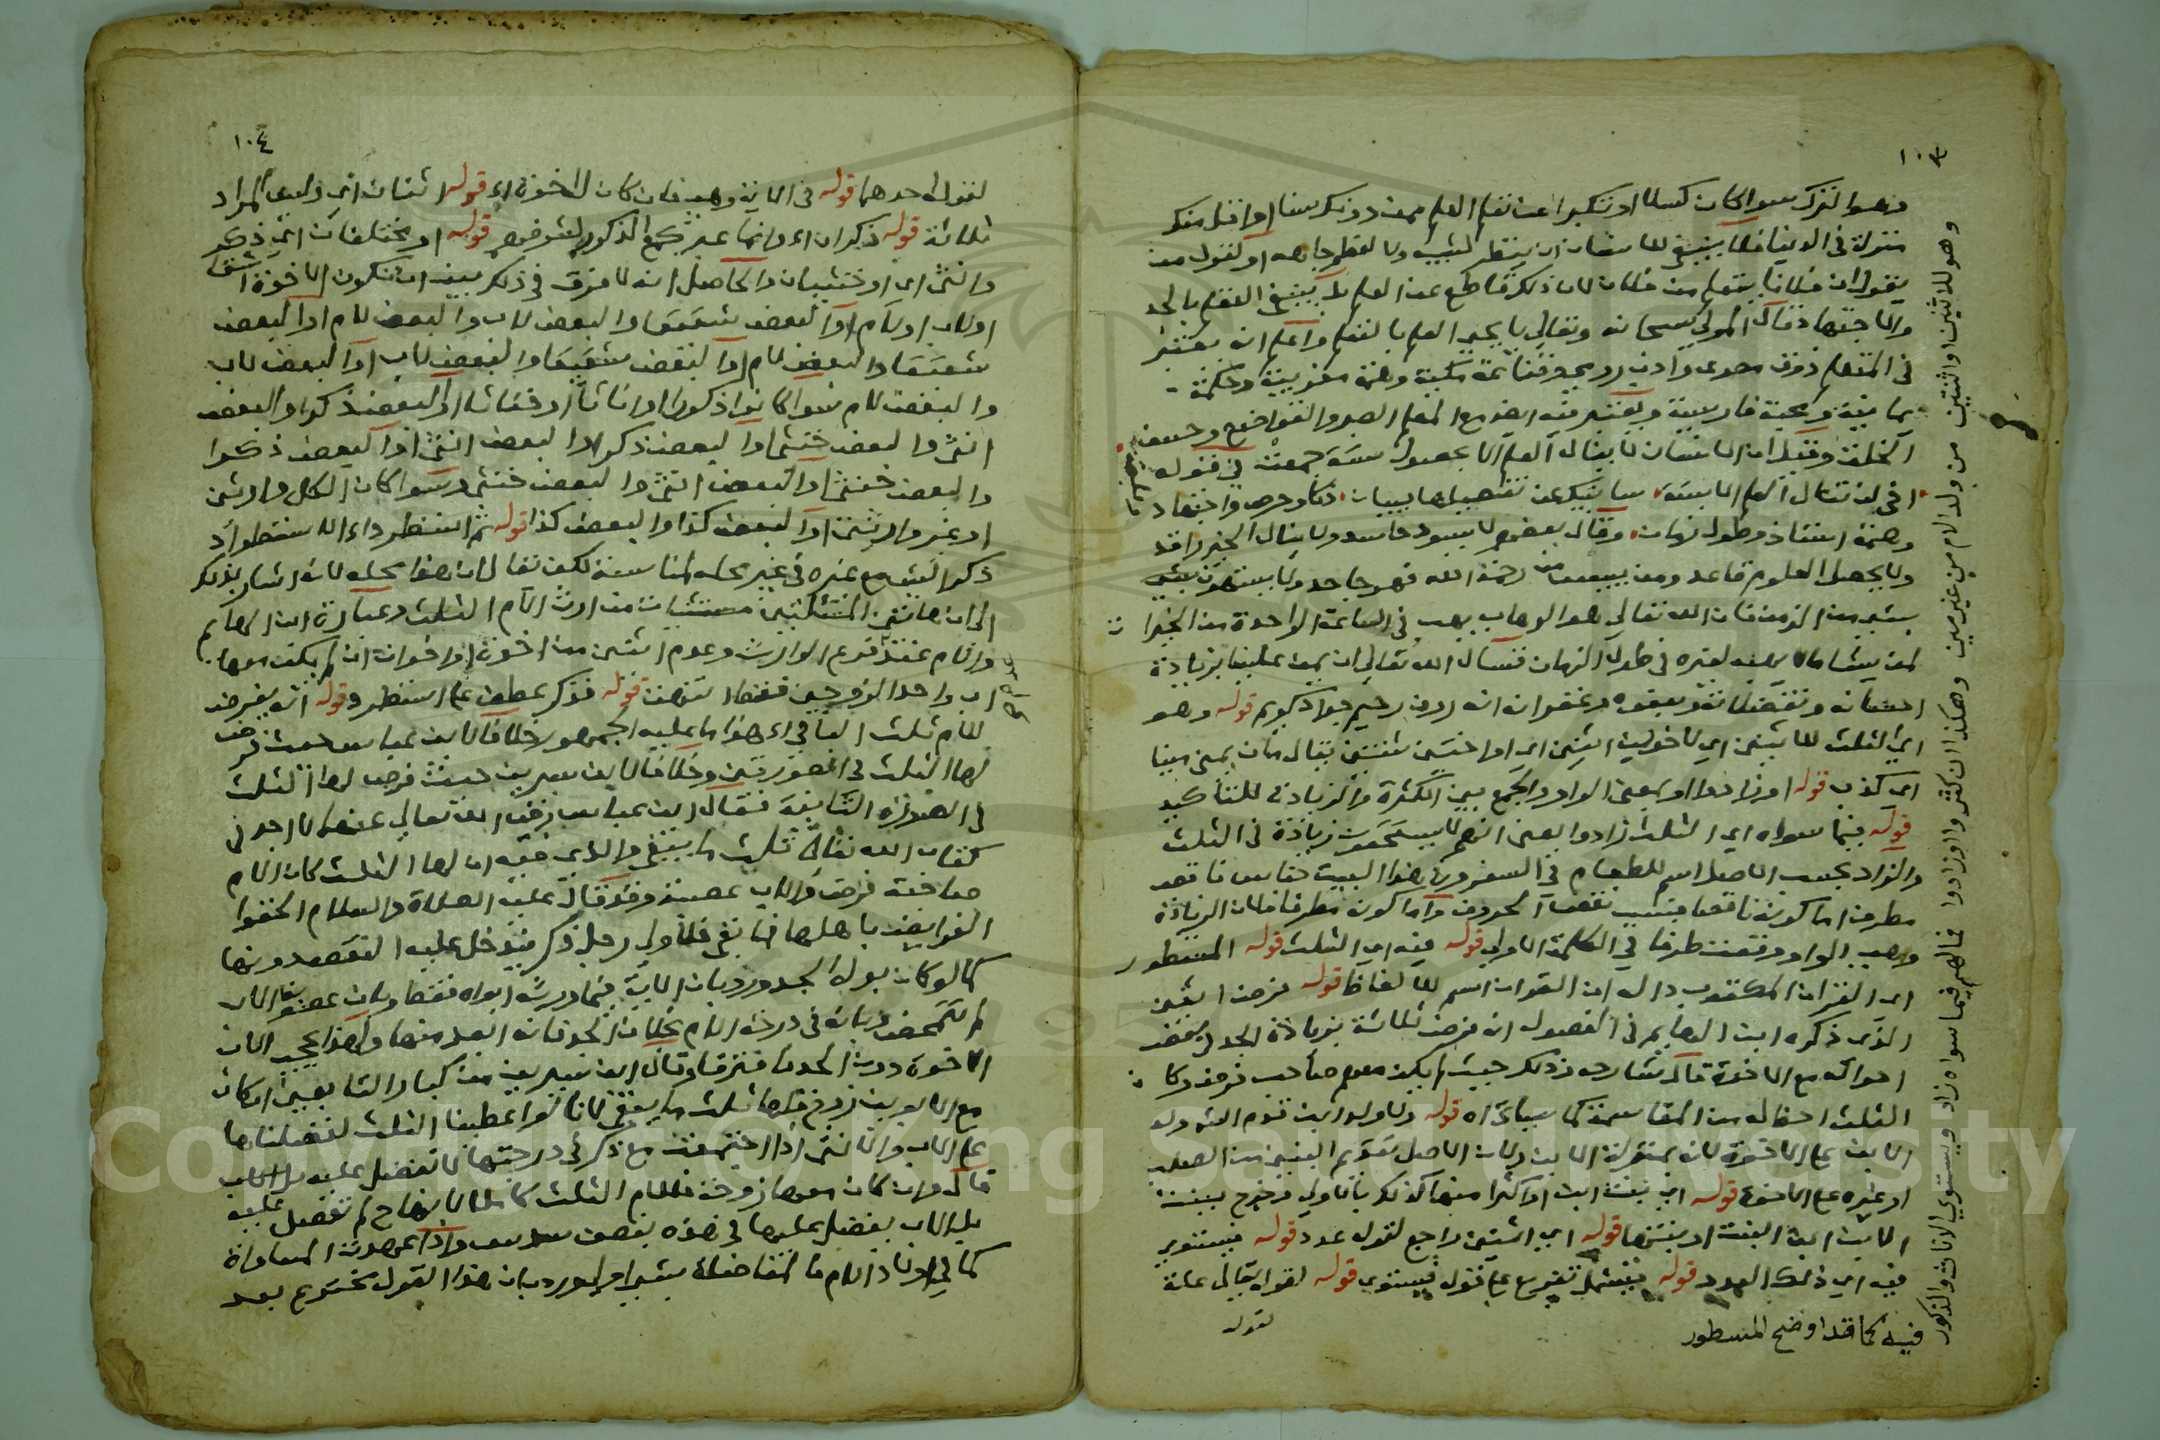 ١٠٣
فهو الترك سواء كان كسلا او تكبرا عن تعلم العلم ممن دونك سنا او اقل منك
منزلة في الدنيا فلا ينبغي للانسان ان ينظر لشيب ولا لعظم جاهه او لقول من
يقول ان فلانا يتعلم من فلان لان ذلك قاطع عن العلم بل ينبغي التعلم بالجد
والاجتهاد قال المولى سبحانه وتعالى يا يحيى العلم بالتعلم واعلم انه يعتبر
في المتعلم
الخلق وقيل ان الانسان لا ينال العلم الا بحصول ستة جمعت في قوله
اخي لن تنال العلم الا بستة سانبيك عن تفصيلها ببيان ذكاء وحرص واجتهاد
وصحبة استاذ وطول زمان وقال بعضهم لا يسود حاسد ولا ينال الخير راقد
ولا يحصل العلوم قاعد ومن ييئس من رحمة الله فهو جاحد ولا يستهون بشيء
يسير من الزمن فان الله تعالى هو الوهاب يهب في الساعة الواحدة من الخيرات
لمن يشاء ما لا يهبه لغيره في طول الزمان فنسال الله تعالى ان يمن علينا بزيادة
احسانه وتفضلاته وبعفوه وغفرانه انه رؤف رحيم جواد كريم قوله وهو
اي الثلث للاثنين اي لاخوين اثنين اي او اختين ثنتين يقال مان يمين مينا
اي كذب قوله او زادوا او بمعنى الواو والجمع بين الكثرة والزيادة للتأكيد
قوله فيما سواه اي الثلث زادوا بمعنى انهم لا يستحقون زيادة في الثلث
والزاد بحسب الاصل اسم للطعام في السفر وفي هذا البيت جناس ناقص
مطرف اما كونه ناقصا فبسبب نقص الحروف واما كونه مطرفا فلان الزيادة
وهي الواو وقعت طرفا في الكلمة الاولى قوله فيه اي الثلث قوله المسطور
اي القران المكتوب دال ان القران اسم للالفاظ قوله فرض اثنين
الذي ذكره ابن الهايم في الفصول انه فرض ثلاثة بزيادة الجد في بعض
احواله مع الاخوة قال شارحه وذلك حيث لم يكن معهم صاحب فرض وكان
الثلث احظ له من المقاسمة كما سياتي اه قوله ولا ولد ابن قدم الله ولد
الابن على الاخوة لانه بمنزلة الابن ولان الاصل تقديم البنين من الصلب
او غيره على الاخوة قوله اي بنت ابن او اكثر منها كذلك بالاولى وخرج ببنت
الابن ابن البنت او بنتها قوله اي اثنين راجع لقوله عدد قوله فيستوي
فيه اي ذلك العدد قوله فيشمل تفريع على قوله فيستوي قوله لقوله تعالى علة
لقوله
وهو للاثنين او اثنتين من ولد الام من غير مين وهكذا ان كثروا او زادوا فما لهم فيما سواه زاد ويستوي الاناث والذكور
فيه كما قد اوضح المسطور
١٠٤
لقوله احدهما قوله في الاية وهي فان كان له اخوة اه قوله اثنان اي وليس المراد
ثلاثة قوله ذكران اه وانما عبر بجمع الذكور لشرفهم قوله او مختلفان اي ذكر
وانثى اي او خنثيان والحاصل انه لا فرق في ذلك بين ان تكون الاخوة اشقاء
او لاب او لام او البعض شقيقا والبعض لاب والبعض لام او البعض
شقيقا والبعض لام او البعض شقيقا والبعض لاب او البعض لاب
والبعض لام سواء كانوا ذكورا او اناثا او خناثا او البعض ذكرا والبعض
انثى والبعض خنثى او البعض ذكرا والبعض انثى او البعض ذكرا
والبعض خنثى او البعض انثى والبعض خنثى وسواء كان الكل وارثين
او غير وارثين او البعض كذا والبعض كذا قوله ثم استطرد اه الاستطراد
ذكر الشيء مع غيره في غير محله لمناسبة لكن يقال ان هذا محله لانه اشار بذلك
الى ان هاتين المسئلتين مستثنيان من ارث الام الثلث وعبارة ابن الهايم
والام عند فرع الوارث وعدم اثنين من اخوة او اخوات ان لم يكن معها
اب واحد الزوجين فقط انتهت قوله فذكر عطف على استطرد وقوله انه يفرض
للام ثلث الباقي اه هذا ما عليه الجمهور خلافا لابن عباس حيث فرض
لها الثلث في الصورتين وخلافا لابن سيرين حيث فرض لها الثلث
في الصورة الثانية فقال ابن عباس رضي الله تعالى عنهما لا اجد في
كتاب الله تعالى ثلث ما يبقى والذي فيه ان لها الثلث كان الام
صاحبة فرض والاب عصبة وقد قال عليه الصلاة والسلام الحقوا
الفرايض باهلها فما بقي فلاولى رجل ذكر فيدخل عليه النقص دونها
كما لو كان بدل الجد ورد بان الاية فيما ورثه ابواه فقط وبان عصوبة الاب
لم تتمحض وبانه في درجة الام بخلاف الجد فانه ابعد منها ولهذا يحجب الاب
الاخوة دون الجد فافترقا وقال ابن سيرين من كبار التابعين ان كان
مع الابوين زوج فلها ثلث ما يبقى لانا لو اعطينا الثلث لفضلناها
على الاب والانثى اذا اجتمعت مع ذكر في درجتها لا تفضل عليه بل الاب
قال وان كان معها زوجة فللام الثلث كاملا لانها ح لم تفضل عليه
بل الاب يفضل عليها في هذه بنصف سدس واذا عهدت المساواة
كما في اولاد الام فالمفاضلة بشيء اولى ورد بان هذا القول مخترع بعد